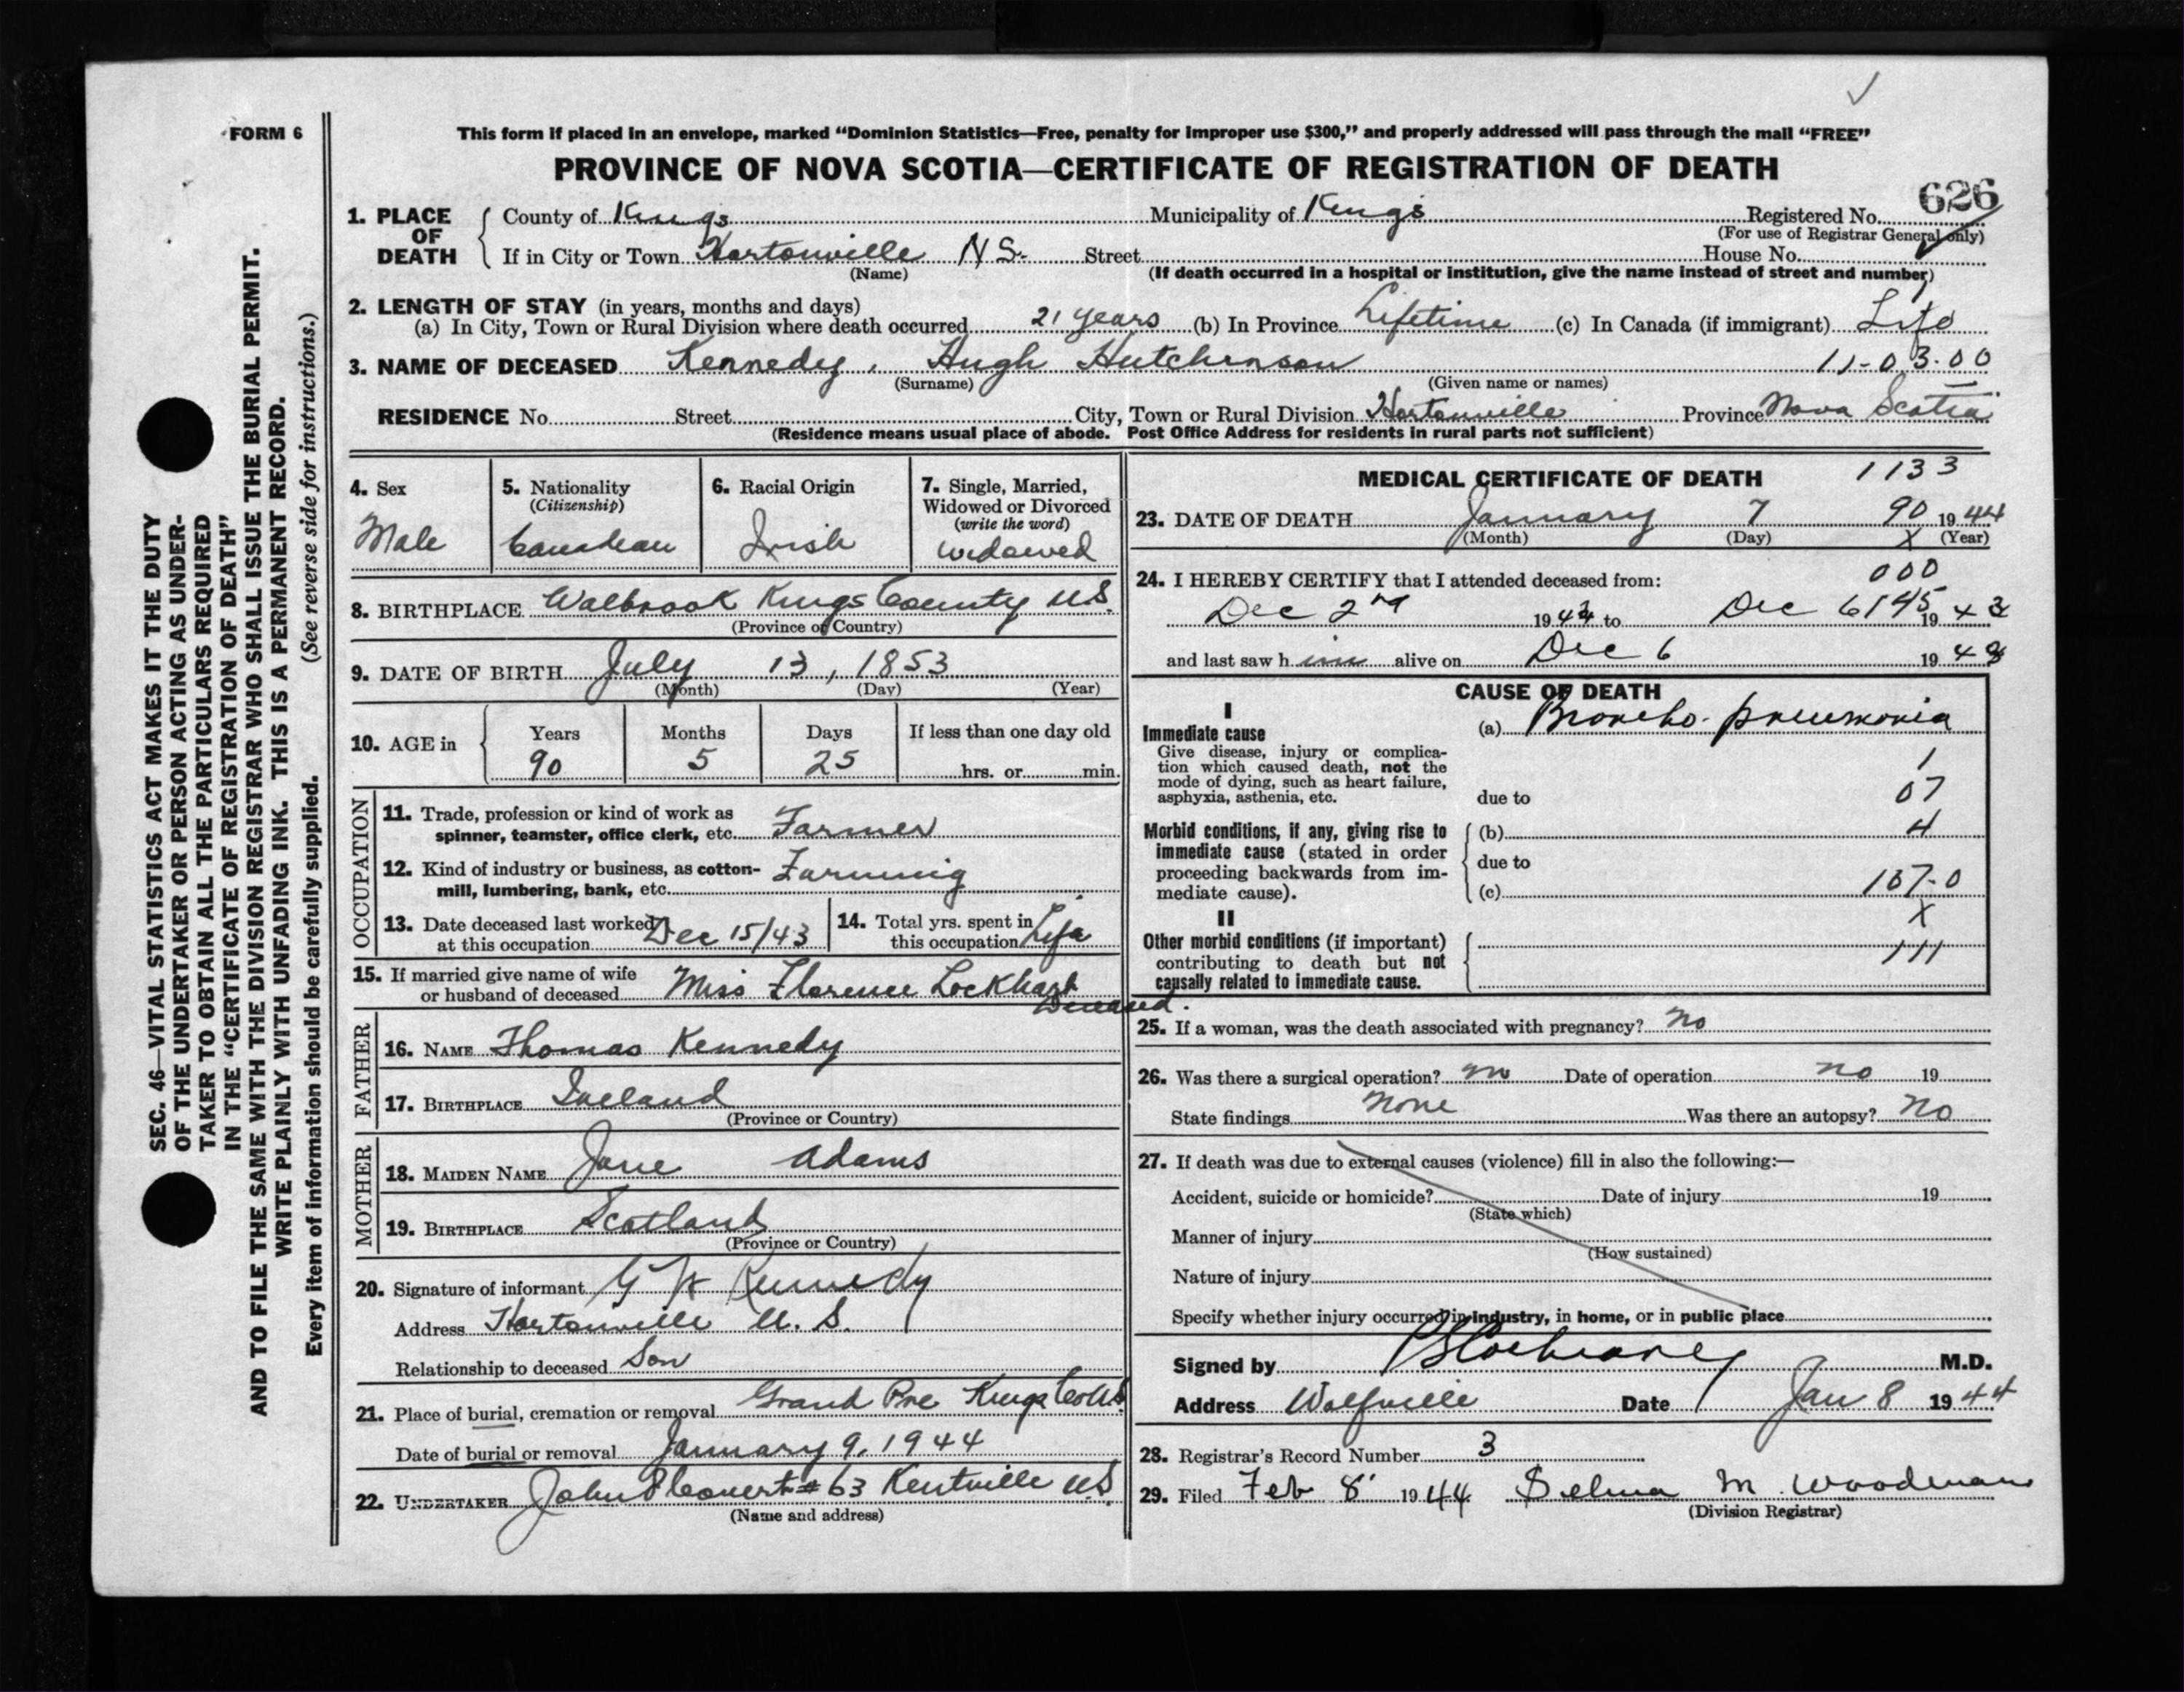 FORM 6
This form if placed in an envelope, marked “Dominion Statistics—Free, penalty for improper use $300,” and properly addressed will pass through the mail “FREE”
PROVINCE OF NOVA SCOTIA—CERTIFICATE OF REGISTRATION OF DEATH
626
1. PLACE OF DEATH
County of Kings Municipality of Kings Registered No.
(For use of Registrar General only)
If in City or Town Hortonville N.S. Street House No.
(Name) (If death occurred in a hospital or institution, give the name instead of street and number)
2. LENGTH OF STAY (in years, months and days)
(a) In City, Town or Rural Division where death occurred 21 years (b) In Province Lifetime (c) In Canada (if immigrant) Life
3. NAME OF DECEASED Kennedy, Hugh Hutchinson 11-03-00
(Surname) (Given name or names)
RESIDENCE No. Street City, Town or Rural Division Hortonville Province Nova Scotia
(Residence means usual place of abode. Post Office Address for residents in rural parts not sufficient)
4. Sex
Male
5. Nationality
(Citizenship)
Canadian
6. Racial Origin
Irish
7. Single, Married, Widowed or Divorced
(write the word)
Widowed
8. BIRTHPLACE Walbrook Kings County N.S.
(Province or Country)
9. DATE OF BIRTH July 13, 1853
(Month) (Day) (Year)
10. AGE in
Years Months Days If less than one day old
90 5 25 hrs. or min.
OCCUPATION
11. Trade, profession or kind of work as
spinner, teamster, office clerk, etc. Farmer
12. Kind of industry or business, as cotton-
mill, lumbering, bank, etc. Farming
13. Date deceased last worked
at this occupation Dec 15/43
14. Total yrs. spent in
this occupation Life
15. If married give name of wife
or husband of deceased Miss Florence Lockhart
Deceased.
FATHER
16. NAME Thomas Kennedy
17. BIRTHPLACE Ireland
(Province or Country)
MOTHER
18. MAIDEN NAME Jane Adams
19. BIRTHPLACE Scotland
(Province or Country)
20. Signature of informant Kennedy
Address Hortonville N.S.
Relationship to deceased Son
21. Place of burial, cremation or removal Grand Pre Kings Co N.S.
Date of burial or removal January 9, 1944
22. UNDERTAKER John # 63 Kentville N.S.
(Name and address)
MEDICAL CERTIFICATE OF DEATH 1133
23. DATE OF DEATH January 7 90 1944
(Month) (Day) X (Year)
24. I HEREBY CERTIFY that I attended deceased from: 000
Dec 2nd 1943 to Dec 6 1943
and last saw him alive on Dec 6 1943
CAUSE OF DEATH
I
Immediate cause
Give disease, injury or complica-
tion which caused death, not the
mode of dying, such as heart failure,
asphyxia, asthenia, etc.
(a) Broncho-pneumonia
1
due to 07
Morbid conditions, if any, giving rise to
immediate cause (stated in order
proceeding backwards from im-
mediate cause).
(b) 4
due to
(c) 107-0
II X
Other morbid conditions (if important)
contributing to death but not
causally related to immediate cause.
111
25. If a woman, was the death associated with pregnancy? No
26. Was there a surgical operation? no Date of operation no 19
State findings None Was there an autopsy? No
27. If death was due to external causes (violence) fill in also the following:—
Accident, suicide or homicide? Date of injury 19
(State which)
Manner of injury
(How sustained)
Nature of injury
Specify whether injury occurred in industry, in home, or in public place
Signed by Cochrane M.D.
Address Wolfville Date Jan 8 1944
28. Registrar's Record Number 3
29. Filed Feb 8 1944 Selma M. Woodman
(Division Registrar)
SEC. 46—VITAL STATISTICS ACT MAKES IT THE DUTY
OF THE UNDERTAKER OR PERSON ACTING AS UNDER-
TAKER TO OBTAIN ALL THE PARTICULARS REQUIRED
IN THE “CERTIFICATE OF REGISTRATION OF DEATH”
AND TO FILE THE SAME WITH THE DIVISION REGISTRAR WHO SHALL ISSUE THE BURIAL PERMIT.
WRITE PLAINLY WITH UNFADING INK. THIS IS A PERMANENT RECORD.
Every item of information should be carefully supplied. (See reverse side for instructions.)